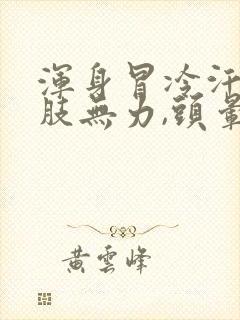 渾身冒冷汗
肢無力,頭暈
黃雲峰